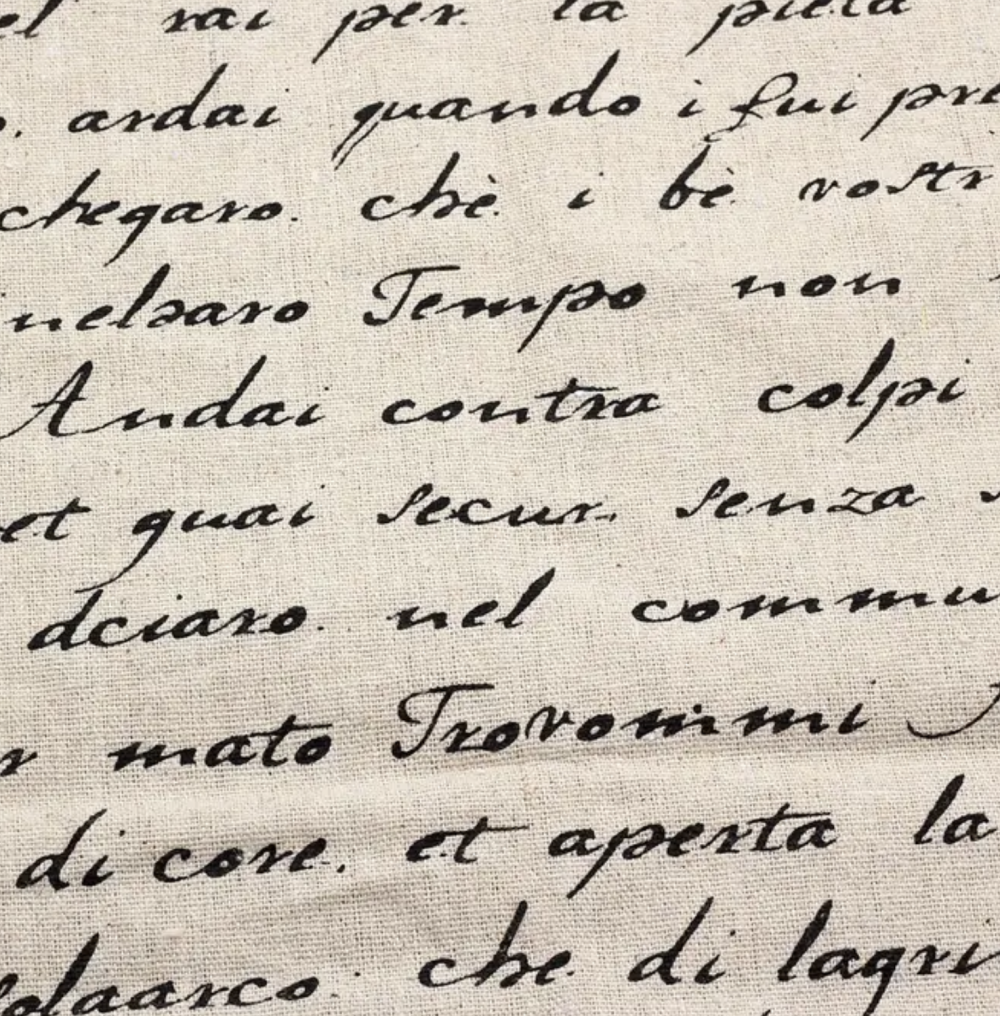 el rai per la pieta
. ardai quando i fui pre
chegaro. chè i bè vostr
nelsaro Tempo non
Andai contra colpi
et guai secur. senza s
dciaro. nel commu
r mato Trovommi
di core. et aperta la
olaarco. che di lagri